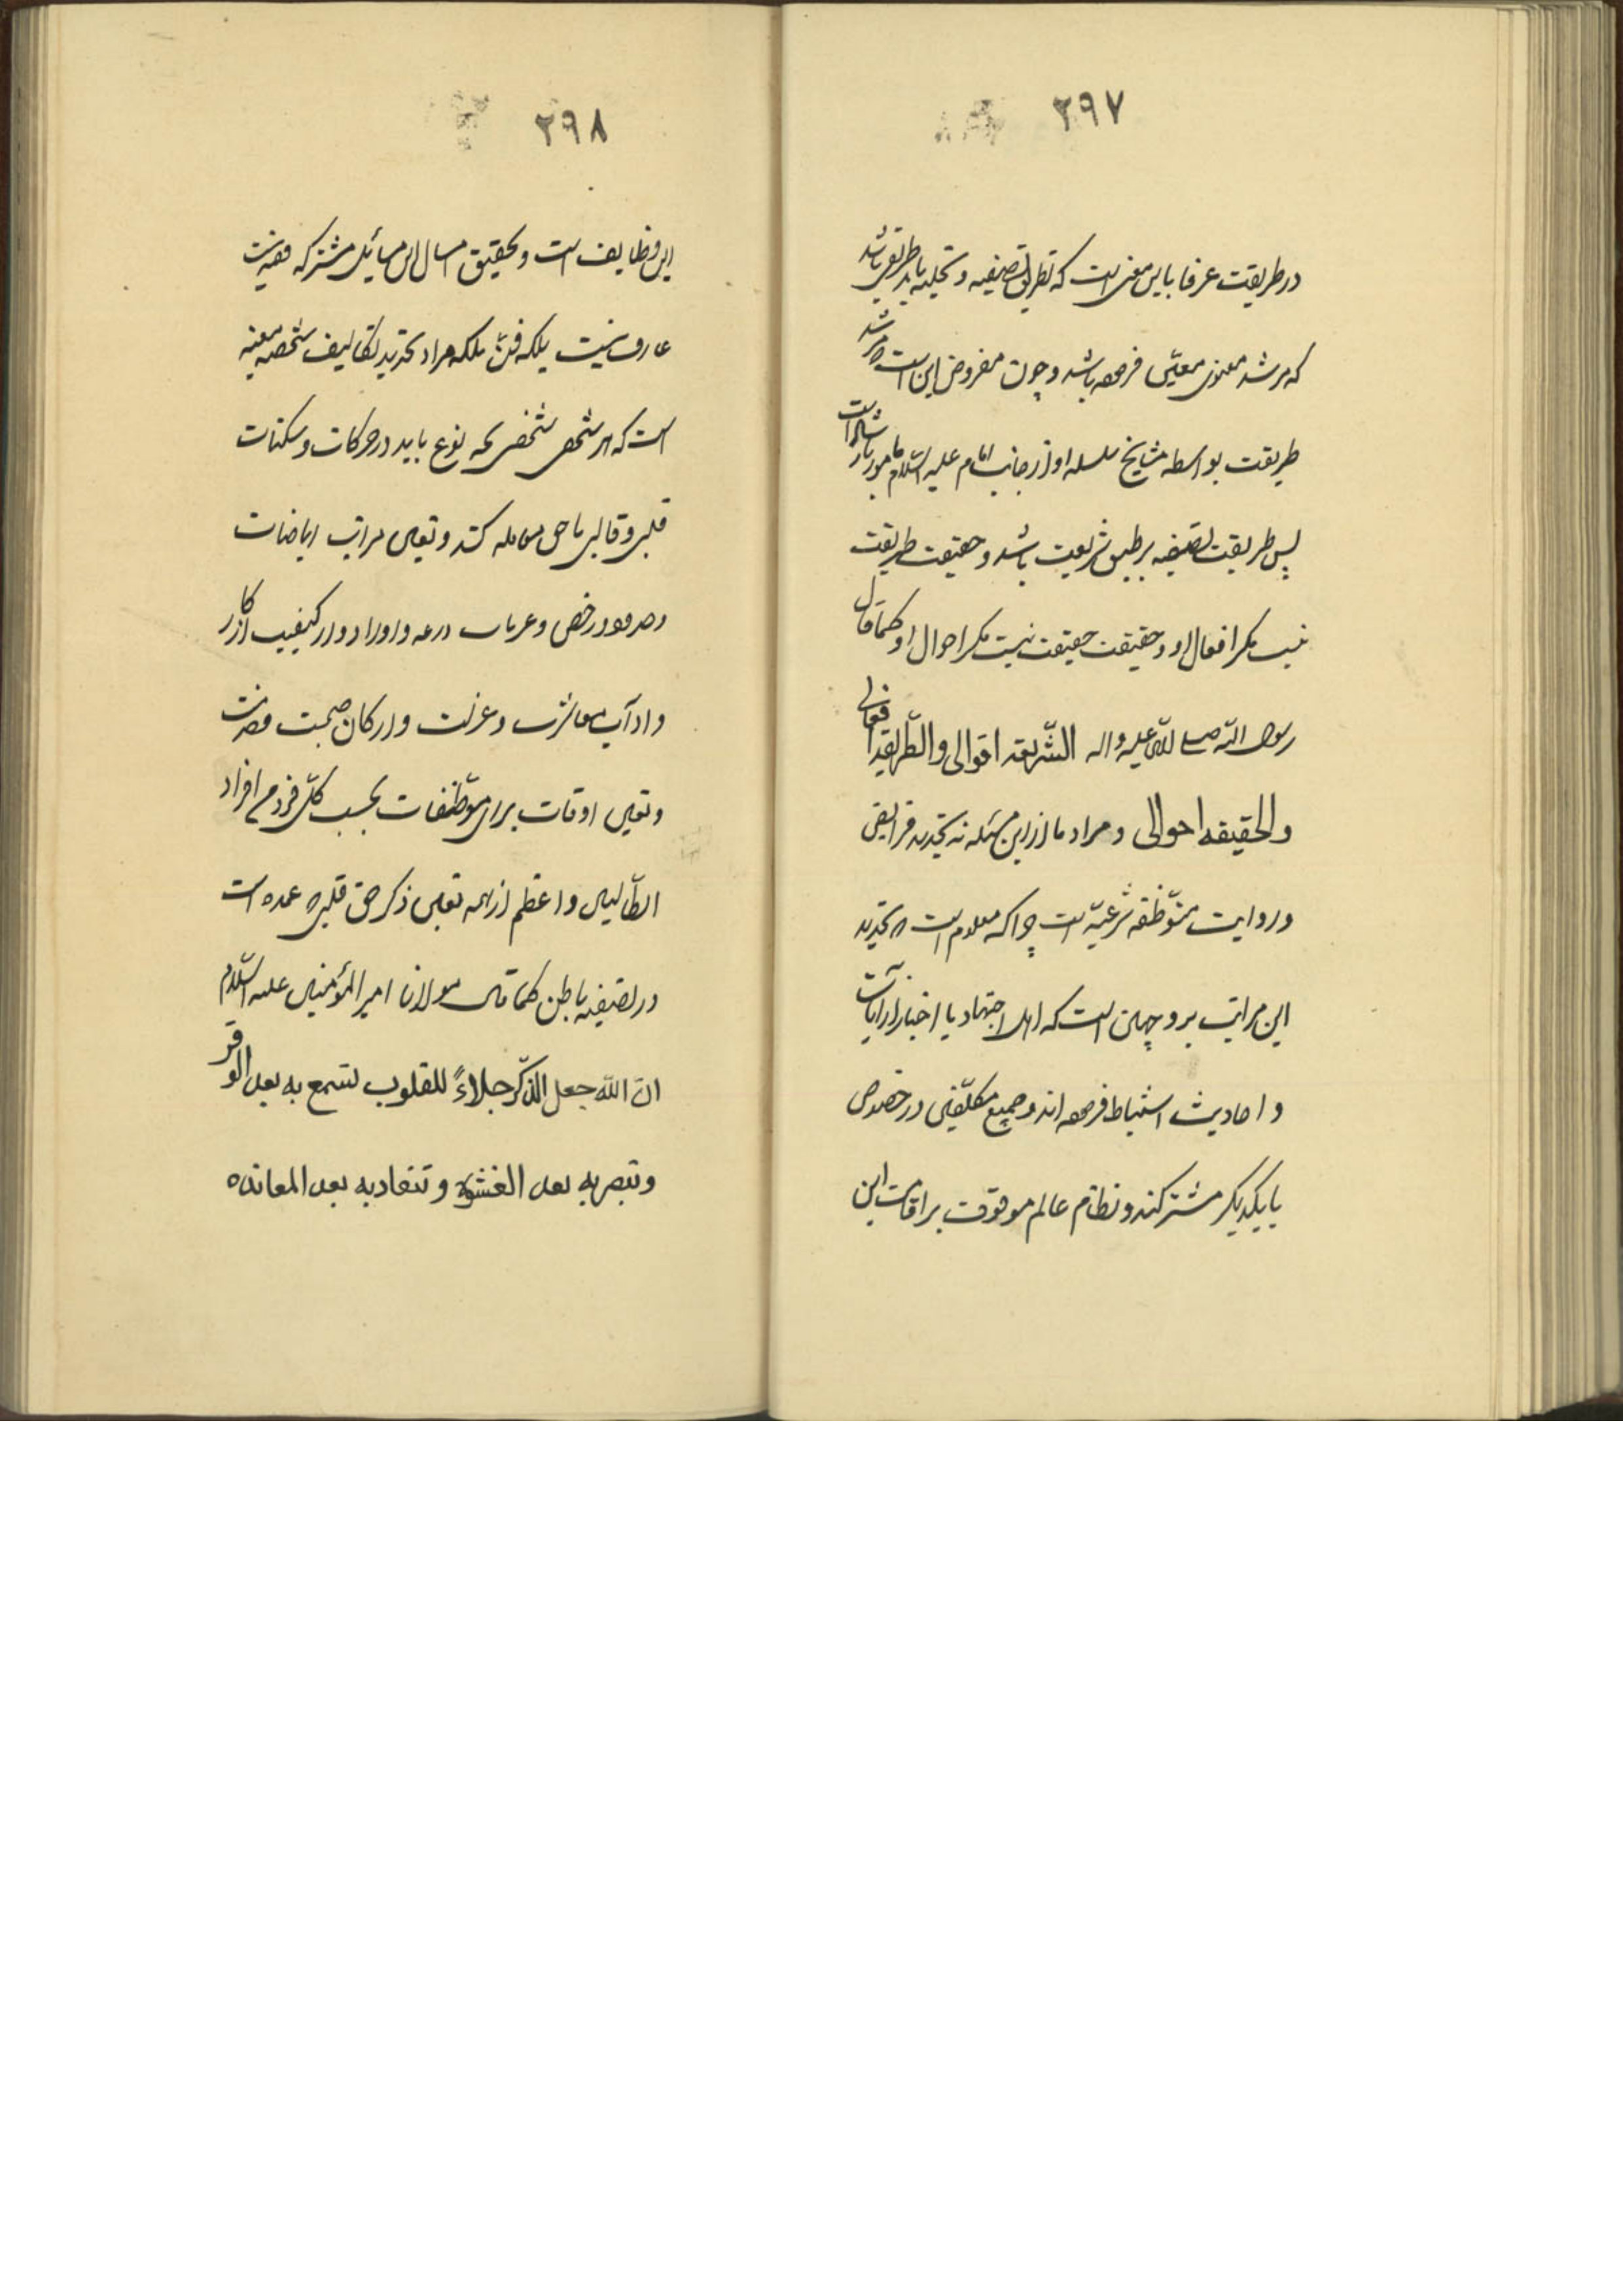 ۲۹۷
در طریقت عرفا باین معنی است که بطریق تصفیه و تحلیه باید بطریقی باشد
که مرشد معنوی معین فرموده باشد و چون مفروض این است که مرشد
طریقت بواسطه مشایخ سلسله او از جانب امام علیه السلام مامور بارشاد است
پس طریقت تصفیه بر طبق شریعت باشد و حقیقت طریقت
نیست مگر افعال او و حقیقت حقیقت نیست مگر احوال او کما قال
رسول الله صلی الله علیه واله الشریعه اقوالی والطریقه افعالی
والحقیقه احوالی و مراد ما از این مسئله نه تحدید فرایض
و روایت موظفه شرعیه است چرا که معلوم است که تحدید
این مراتب بر وجهی است که اهل اجتهاد یا اخبار از آیات
و احادیث استنباط فرموده اند و جمیع مکلفین در خصوص
با یکدیگر مشترکند و نظام عالم موقوف بر اقامت این
۲۹۸
این وظایف است و تحقیق امثال این مسایل مشترکه
عارف نیست بلکه فن بلکه مراد تحدید تکالیف شخصیه معینه
است که هر شخص شخصی بچه نوع باید در حرکات و سکنات
قلبی و قالبی با حق معامله کند و تعیین مراتب
و در رخص و و اوراد و کیفیت اذکار
و اداب معاشرت و عزلت و ارکان صحبت
و تعیین اوقات برای موظفات بحسب کل فرد من افراد
الطالبین و اعظم از همه تعیین ذکر حق قلبی که عمده است
در تصفیه باطن کما قال مولانا امیر المؤمنین علیه السلام
ان الله جعل الذکر جلاءً للقلوب لتسمع به بعد الوقر
و تبصر به بعد الغشوه و تنقاد به بعد المعانده